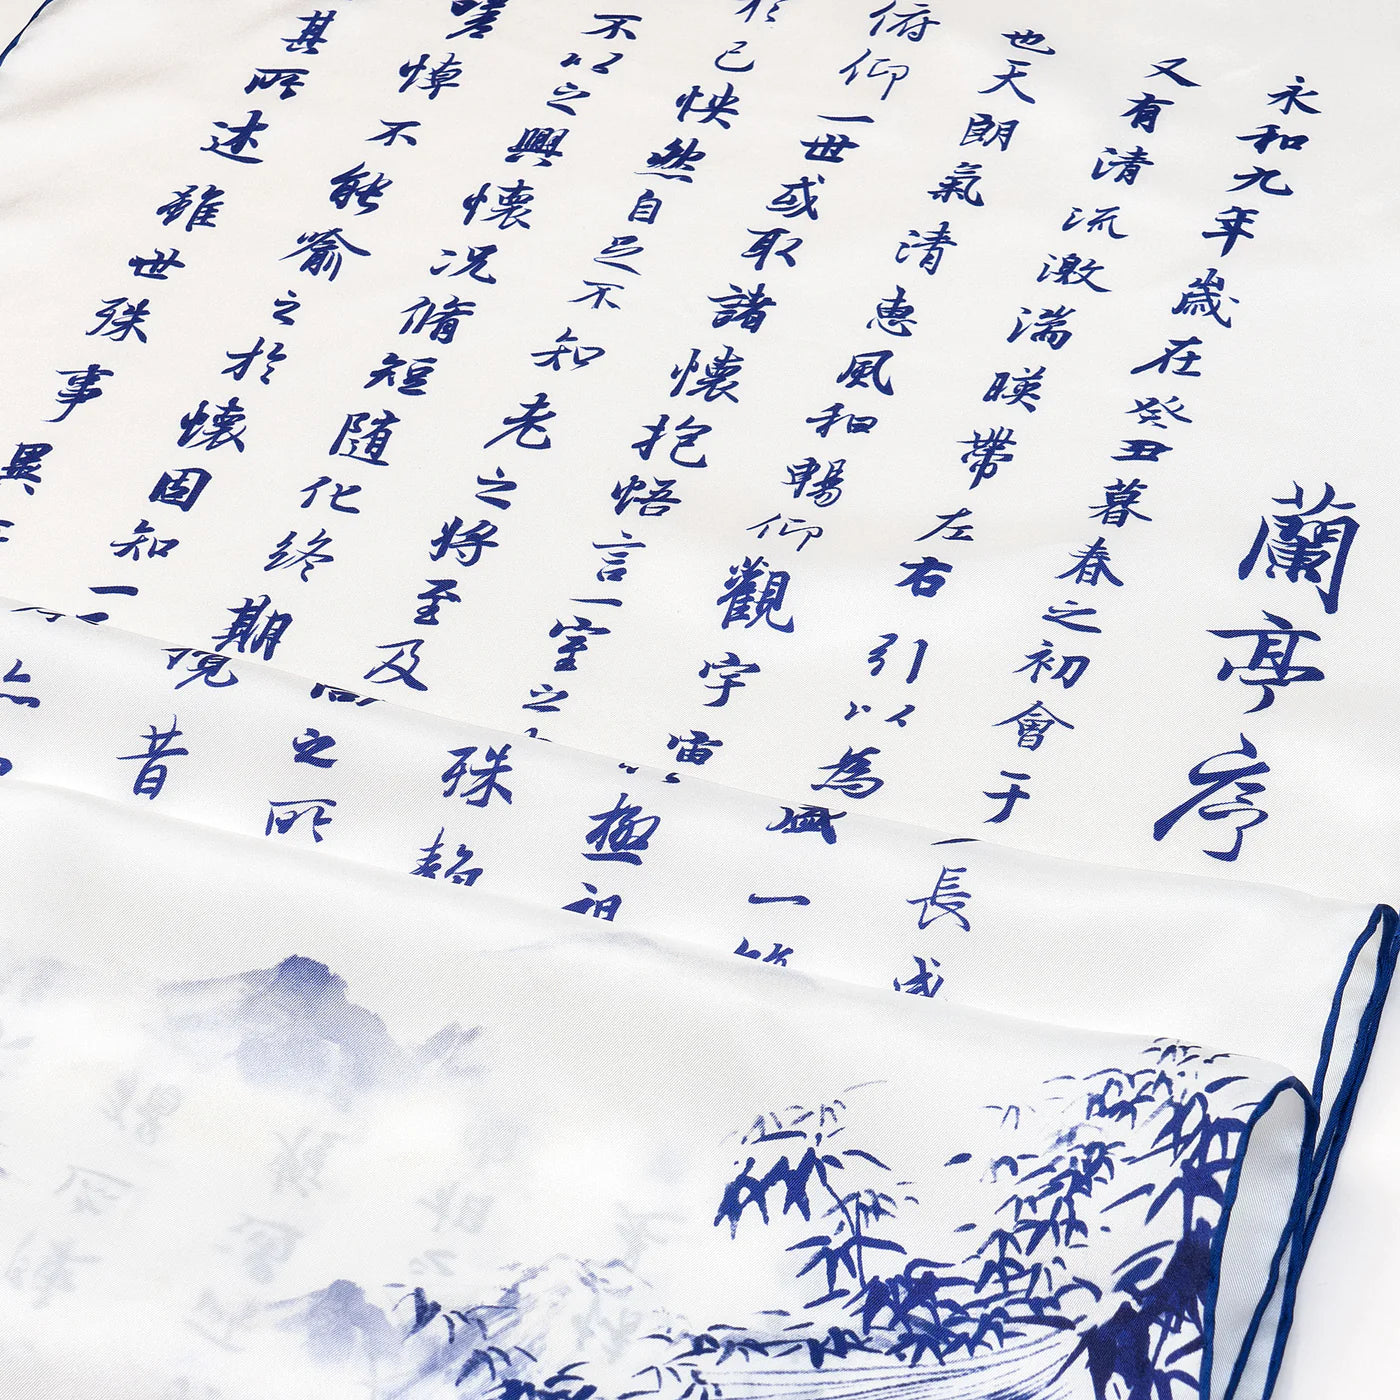 蘭亭序
永和九年歲在癸丑暮春之初會于
長
又有清流激湍暎帶左右引以為
盛一
也天朗氣清惠風和暢仰觀宇宙
極
俯仰一世或取諸懷抱悟言一室之
殊
於己怏然自足不知老之將至及
之所
不以之興懷況脩短隨化終期
昔
嗟悼不能喻之於懷固知一
其所述雖世殊事異